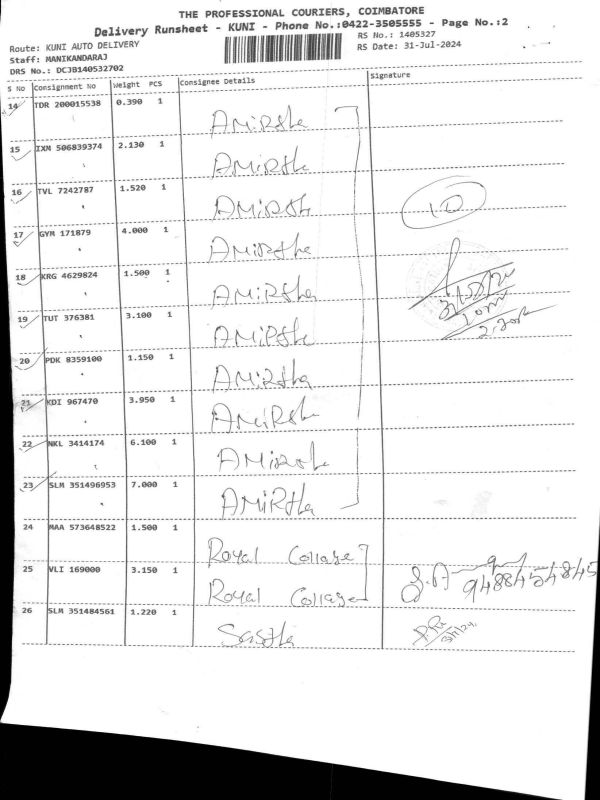 THE PROFESSIONAL COURIERS, COIMBATORE
Delivery Runsheet - KUNI - Phone No.:0422-3505555 - Page No.:2
Route: KUNI AUTO DELIVERY RS No.: 1405327
Staff: MANIKANDARAJ RS Date: 31-Jul-2024
DRS No.: DCJB140532702
S No Consignment No Weight PCS Consignee Details Signature
14 TDR 200015538 0.390 1 AMiRtha
15 IXM 506839374 2.130 1 AMiRtha
16 TVL 7242787 1.520 1 AMiRtha
10
17 GYM 171879 4.000 1 AMiRtha
18 KRG 4629824 1.500 1 AMiRtha
19 TUT 376381 3.100 1 AMiRtha
20 PDK 8359100 1.150 1 AMiRtha
21 KDI 967470 3.950 1 AMiRtha
22 NKL 3414174 6.100 1 AMiRtha
23 SLM 351496953 7.000 1 AMiRtha
24 MAA 573648522 1.500 1 Royal Collage
25 VLI 169000 3.150 1 Royal Collage
9488454845
26 SLM 351484561 1.220 1 Sastha